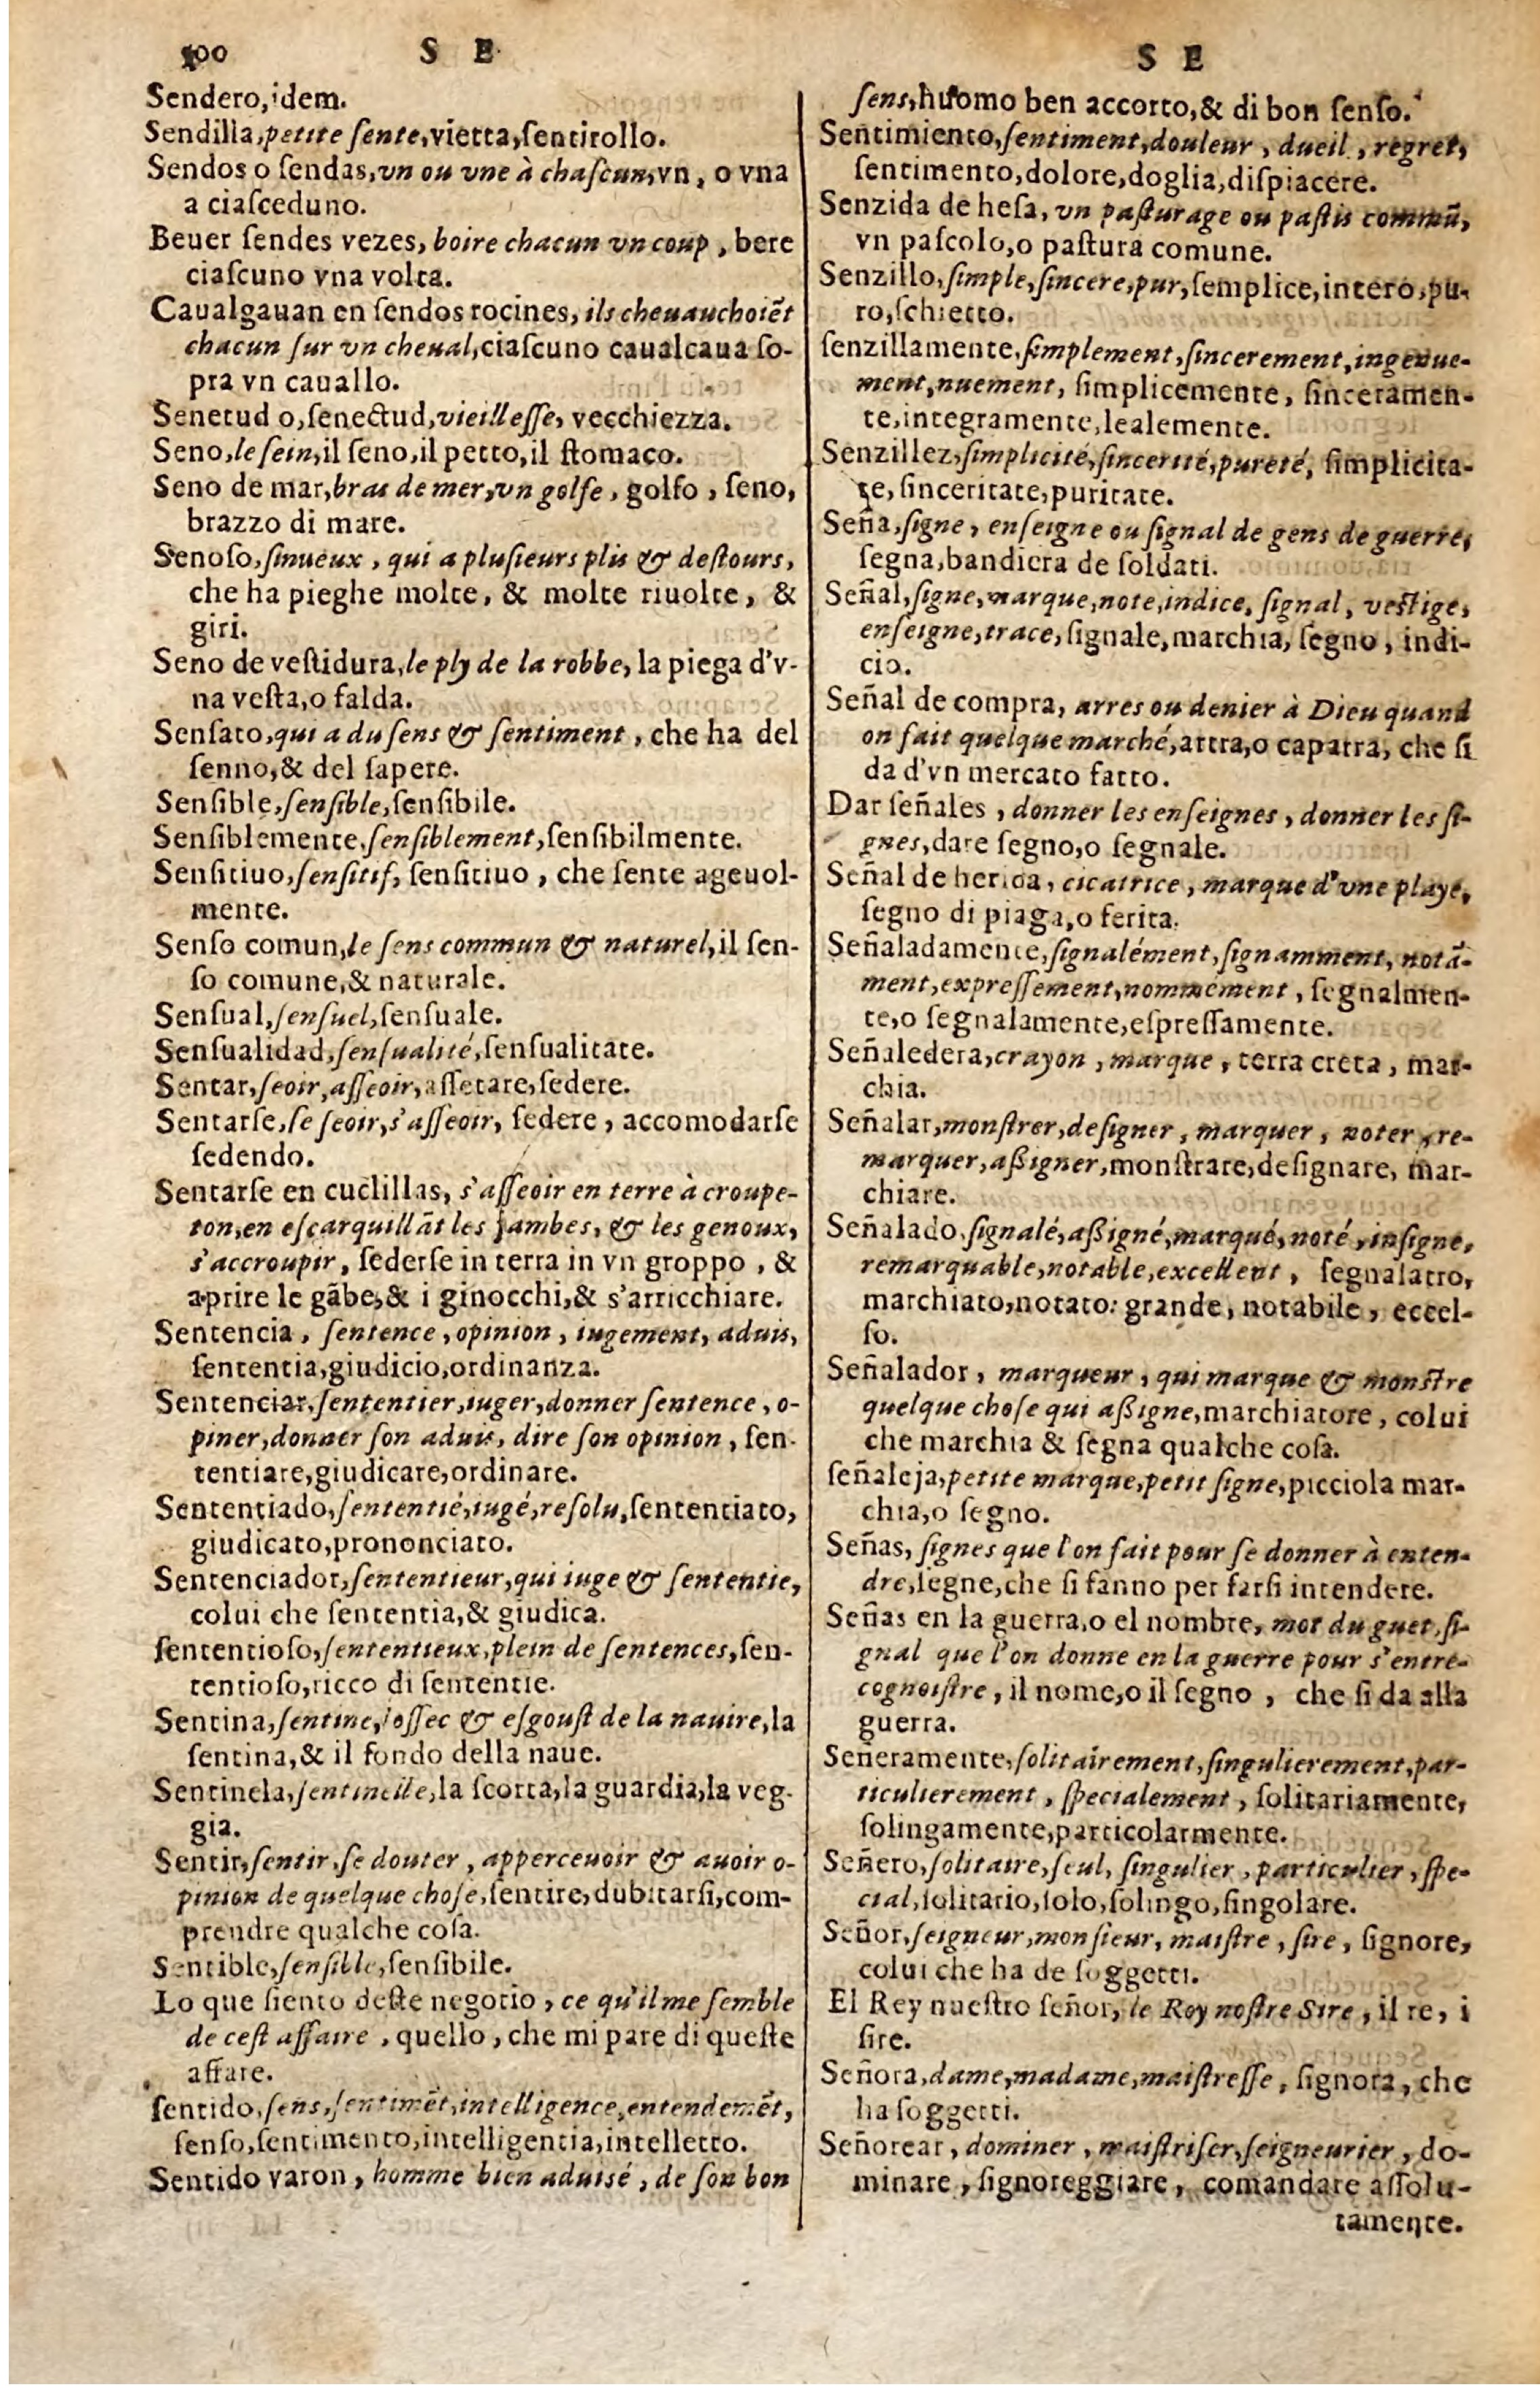 500 S E
Sendero,idem.
Sendilla,petite ſente,vietta,ſentirollo.
Sendos o ſendas,vn ou vne à chaſcun,vn, o vna
a ciaſceduno.
Beuer ſendes vezes, boire chacun vn coup, bere
ciaſcuno vna volta.
Caualgauan en ſendos rocines, ils cheuauchoiẽt
chacun ſur vn cheual,ciaſcuno caualcaua ſo-
pra vn cauallo.
Senetud o,ſenectud,vieilleſſe, vecchiezza.
Seno,le ſein,il ſeno,il petto,il ſtomaco.
Seno de mar,bras de mer,vn golfe, golfo, ſeno,
brazzo di mare.
Senoſo,ſinueux, qui a pluſieurs plis & deſtours,
che ha pieghe molte, & molte riuolte, &
giri.
Seno de veſtidura,le ply de la robbe, la piega d'v-
na veſta,o falda.
Senſato,qui a du ſens & ſentiment, che ha del
ſenno,& del ſapere.
Senſible,ſenſible,ſenſibile.
Senſiblemente,ſenſiblement,ſenſibilmente.
Senſitiuo,ſenſitif, ſenſitiuo, che ſente ageuol-
mente.
Senſo comun,le ſens commun & naturel,il ſen-
ſo comune,& naturale.
Senſual,ſenſuel,ſenſuale.
Senſualidad,ſenſualité,ſenſualitate.
Sentar,ſeoir,aſſeoir,aſſetare,ſedere.
Sentarſe,ſe ſeoir,s'aſſeoir, ſedere, accomodarſe
ſedendo.
Sentarſe en cuclillas, s'aſſeoir en terre à croupe-
ton,en eſcarquillãt les jambes, & les genoux,
s'accroupir, ſederſe in terra in vn groppo, &
aprire le gãbe,& i ginocchi,& s'arricchiare.
Sentencia, ſentence, opinion, iugement, aduis,
ſententia,giudicio,ordinanza.
Sentenciar,ſententier,iuger,donner ſentence, o-
piner,donner ſon aduis, dire ſon opinion, ſen-
tentiare,giudicare,ordinare.
Sententiado,ſententié,iugé,reſolu,ſententiato,
giudicato,prononciato.
Sentenciador,ſententieur,qui iuge & ſententie,
colui che ſententia,& giudica.
ſententioſo,ſententieux,plein de ſentences,ſen-
tentioſo,ricco di ſententie.
Sentina,ſentine,l'oſſec & eſgouſt de la nauire,la
ſentina,& il fondo della naue.
Sentinela,ſentinelle,la ſcorta,la guardia,la veg-
gia.
Sentir,ſentir,ſe douter, apperceuoir & auoir o-
pinion de quelque choſe,ſentire,dubitarſi,com-
prendre qualche coſa.
Sentible,ſenſible,ſenſibile.
Lo que ſiento deſte negotio, ce qu'il me ſemble
de ceſt affaire, quello, che mi pare di queſte
affare.
ſentido,ſens,ſentimẽt,intelligence,entendemẽt,
ſenſo,ſentimento,intelligentia,intelletto.
Sentido varon, homme bien aduisé, de ſon bon
S E
ſens,huomo ben accorto,& di bon ſenſo.
Sentimiento,ſentiment,douleur, dueil, regret,
ſentimento,dolore,doglia,diſpiacere.
Senzida de heſa, vn paſturage ou paſtis commũ,
vn paſcolo,o paſtura comune.
Senzillo,ſimple,ſincere,pur,ſemplice,intero,pu-
ro,ſchietto.
ſenzillamente,ſimplement,ſincerement,ingenue-
ment,nuement, ſimplicemente, ſinceramen-
te,integramente,lealemente.
Senzillez,ſimplicité,ſincerité,pureté, ſimplicita-
te,ſinceritate,puritate.
Seña,ſigne, enſeigne ou ſignal de gens de guerre,
ſegna,bandiera de ſoldati.
Señal,ſigne,marque,note,indice, ſignal, veſtige,
enſeigne,trace,ſignale,marchia, ſegno, indi-
cio.
Señal de compra, arres ou denier à Dieu quand
on fait quelque marché,arra,o caparra, che ſi
da d'vn mercato fatto.
Dar ſeñales, donner les enſeignes, donner les ſi-
gnes,dare ſegno,o ſegnale.
Señal de herida, cicatrice, marque d'vne playe,
ſegno di piaga,o ferita.
Señaladamente,ſignalément,ſignamment, notã-
ment,expreſſement,nommément, ſegnalmen-
te,o ſegnalamente,eſpreſſamente.
Señaledera,crayon, marque, terra creta, mar-
chia.
Señalar,monſtrer,deſigner, marquer, noter, re-
marquer,aßigner,monſtrare,deſignare, mar-
chiare.
Señalado,ſignalé,aßigné,marqué,noté,inſigne,
remarquable,notable,excellent, ſegnalatro,
marchiato,notato: grande, notabile, eccel-
ſo.
Señalador, marqueur, qui marque & monſtre
quelque choſe qui aßigne,marchiatore, colui
che marchia & ſegna qualche coſa.
ſeñaleja,petite marque,petit ſigne,picciola mar-
chia,o ſegno.
Señas, ſignes que l'on fait pour ſe donner à enten-
dre,ſegne,che ſi fanno per farſi intendere.
Señas en la guerra,o el nombre, mot du guet,ſi-
gnal que l'on donne en la guerre pour s'entre-
cognoiſtre, il nome,o il ſegno, che ſi da alla
guerra.
Señeramente,ſolitairement,ſingulierement,par-
ticulierement, ſpecialement, ſolitariamente,
ſolingamente,particolarmente.
Señero,ſolitaire,ſeul, ſingulier, particulier, ſpe-
cial,ſolitario,ſolo,ſolingo,ſingolare.
Señor,ſeigneur,monſieur, maiſtre, ſire, ſignore,
colui che ha de ſoggetti.
El Rey nueſtro ſeñor, le Roy noſtre Sire, il re, i
ſire.
Señora,dame,madame,maiſtreſſe, ſignora, che
ha ſoggetti.
Señorear, dominer, maiſtriſer,ſeigneurier, do-
minare, ſignoreggiare, comandare aſſolu-
tamente.